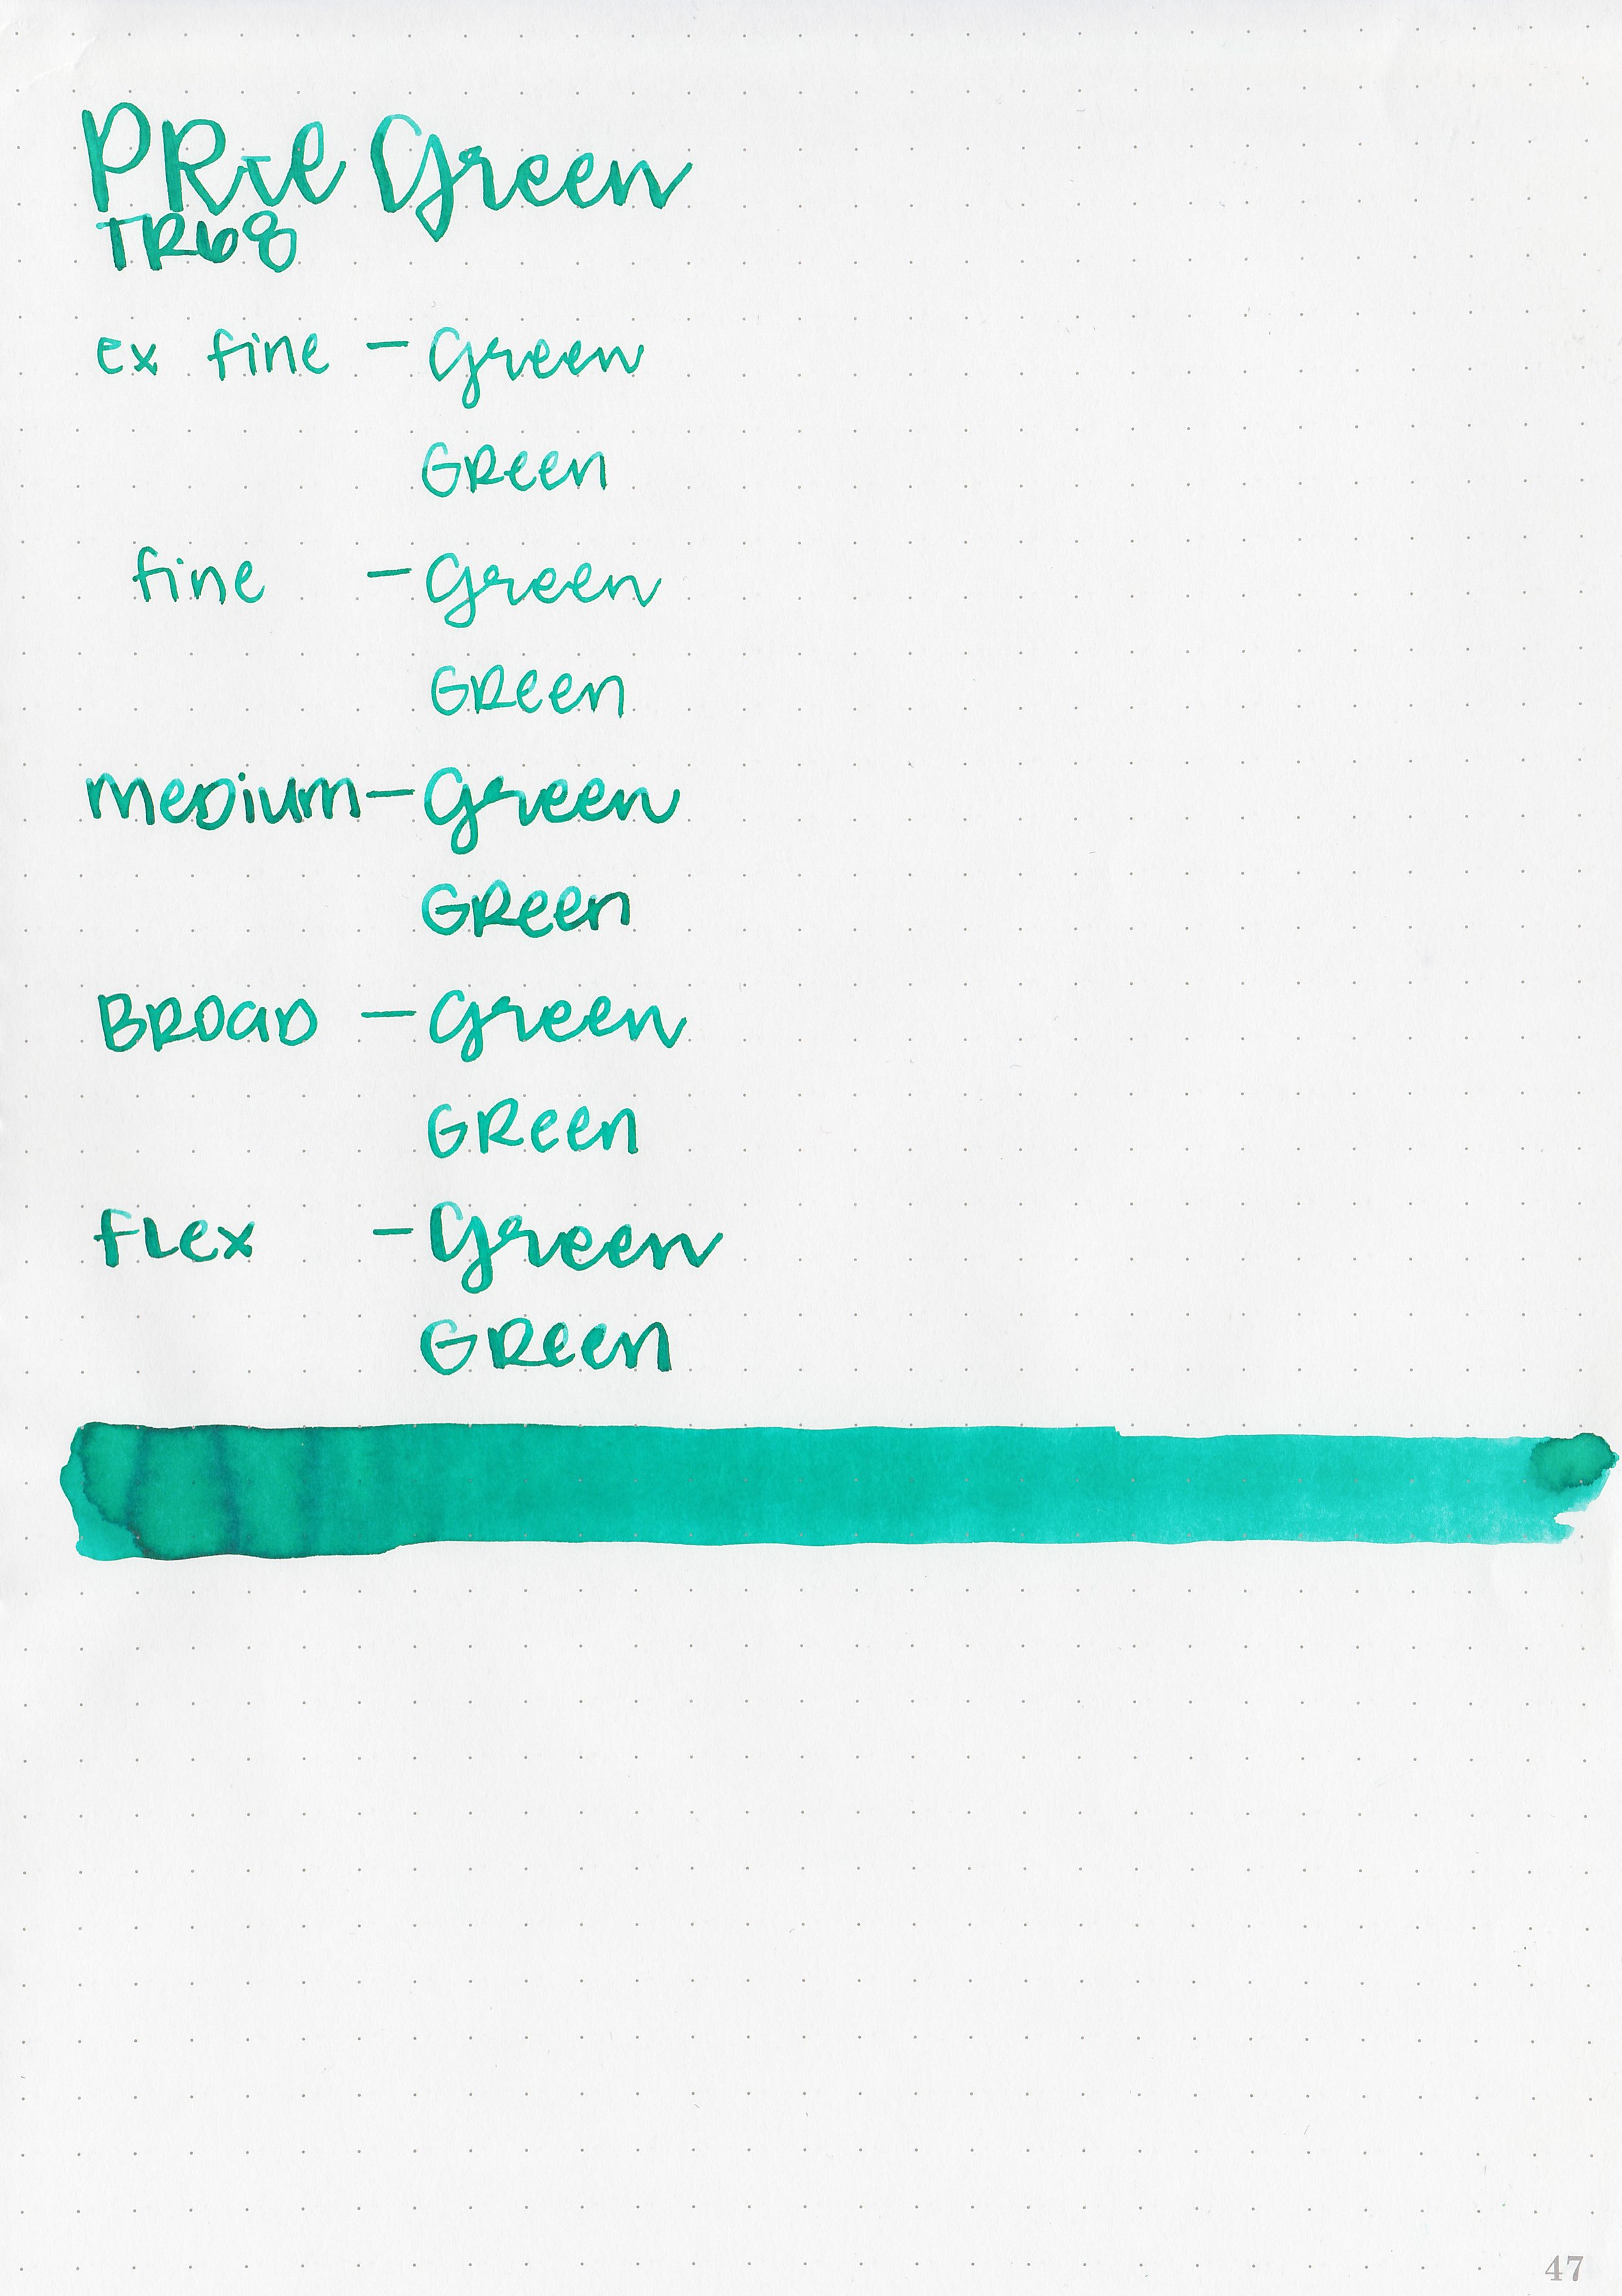 PR te Green
TR68
ex fine - Green
Green
fine - Green
Green
medium - Green
Green
Broad - Green
Green
Flex - Green
Green
47